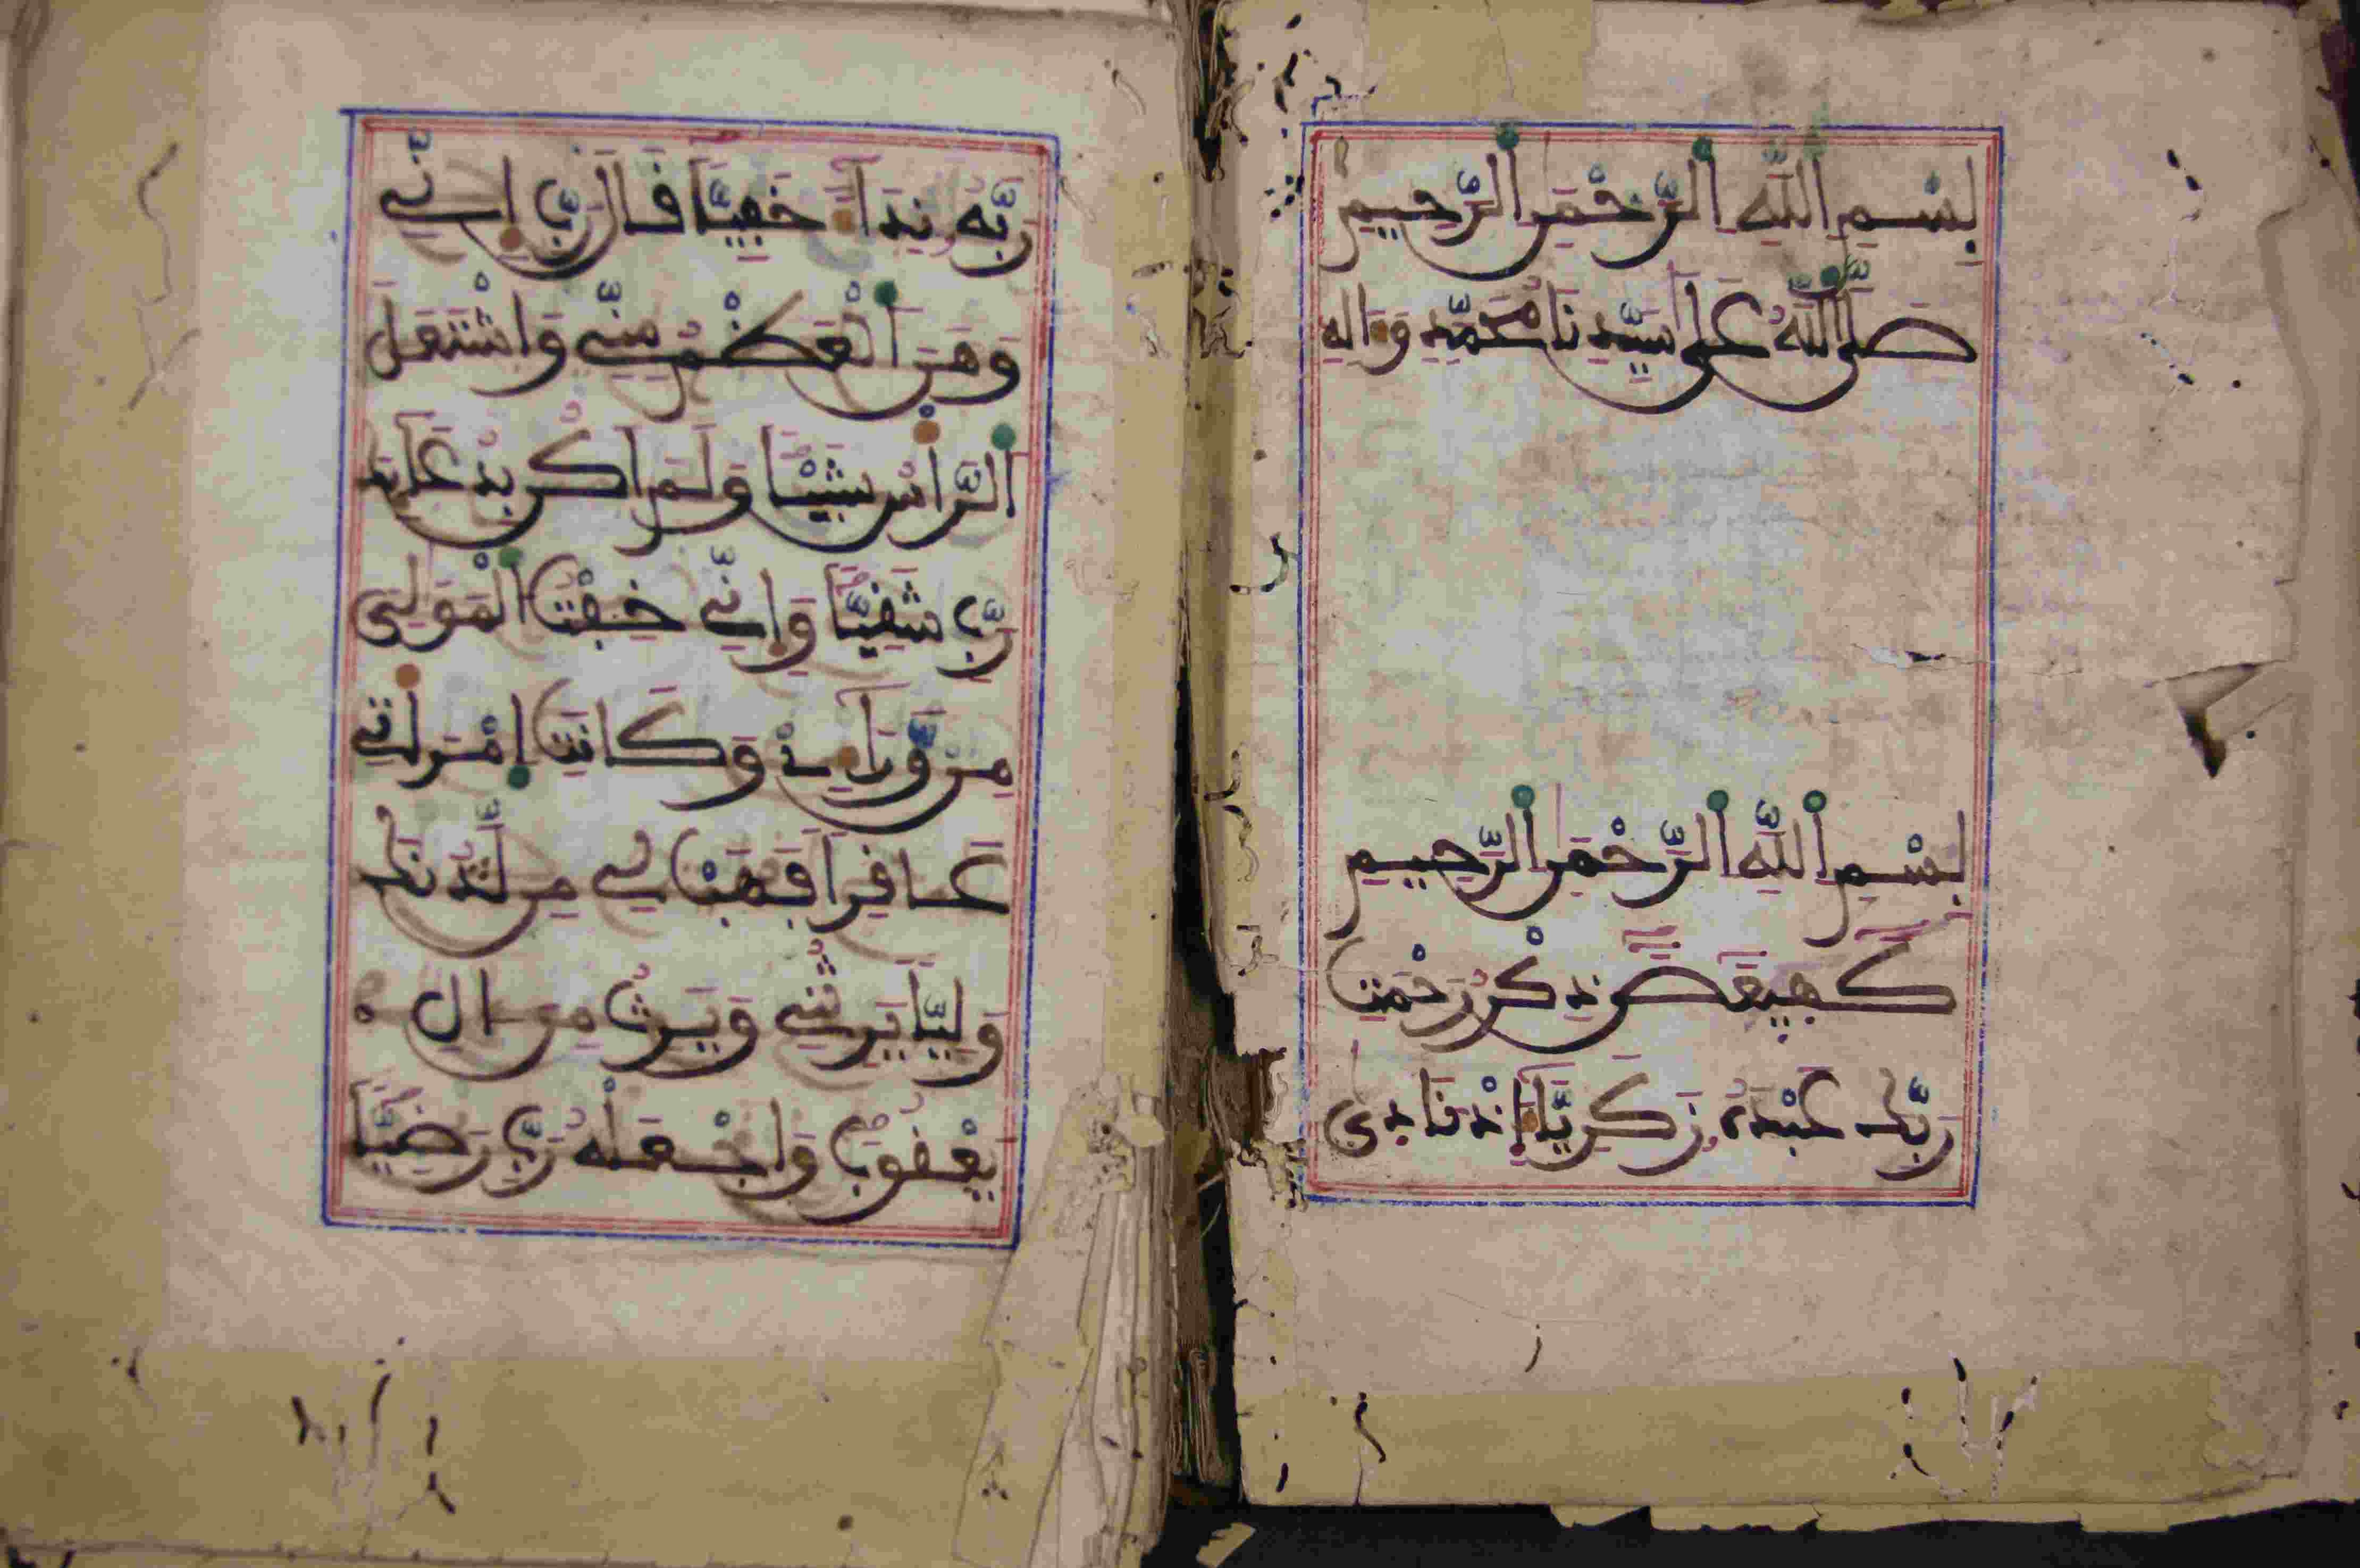 بِسْمِ اللَّهِ الرَّحْمَنِ الرَّحِيمِ
صَلَّى اللَّهُ عَلَى سَيِّدِنَا مُحَمَّدٍ وَءَالِهِ
بِسْمِ اللَّهِ الرَّحْمَنِ الرَّحِيمِ
كَهيعَصَ ذِكْرُ رَحْمَتِ
رَبِّكَ عَبْدَهُ زَكَرِيَّاءَ اِذْ نَادَى
رَبَّهُ نِدَاءً خَفِيًّا قَالَ رَبِّ إِنِّي
وَهَنَ الْعَظْمُ مِنِّي وَاشْتَعَلَ
الرَّأْسُ شَيْبًا وَلَمَ اَكُنْ بِدُعَائِكَ
رَبِّ شَقِيًّا وَإِنِّي خِفْتُ الْمَوَلِيَ
مِنْ وَّرَاءِي وَكَانَتِ امْرَأَتِي
عَاقِرًا فَهَبْ لِي مِن لَّدُنكَ
وَلِيًّا يَرِثُنِي وَيَرِثُ مِنَ الِ
يَعْقُوبَ وَاجْعَلْهُ رَبِّ رَضِيًّا